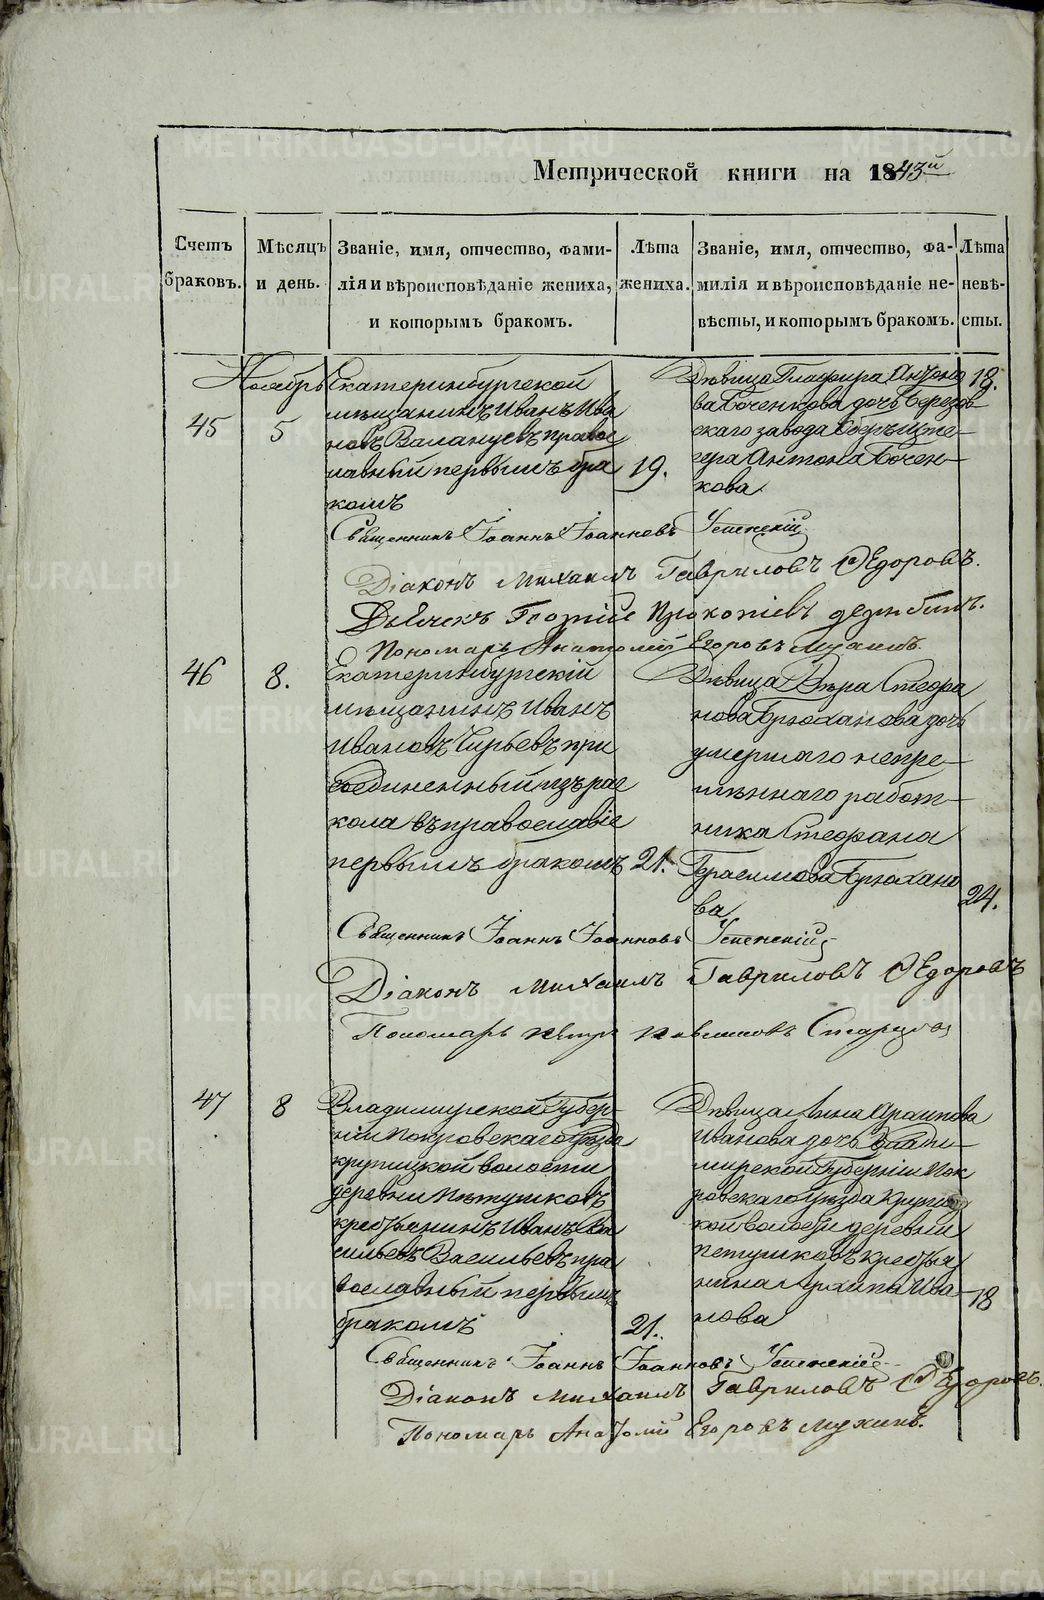 Метрической книги на 1843й
Счетъ браковъ.
Мѣсяцъ и день.
Званіе, имя, отчество, фами-
лія и вѣроисповѣданіе жениха,
и которымъ бракомъ.
Лѣта
жениха.
Званіе, имя, отчество, фа-
милія и вѣроисповѣданіе не-
вѣсты, и которымъ бракомъ.
Лѣта
невѣ-
сты.
Ноябрь
45
5
Екатеринбургской
мѣщанинъ Иванъ Ива
новъ православ
лавный первымъ бра
комъ
19.
Дѣвица Глафира Антоно
ва Боченкова дочь Березов
скаго завода
Антона Бочен-
кова
18.
Священникъ Іоаннъ Іоанновъ Успенскій
Діаконъ Михаилъ Гавриловъ Ѳедоровъ.
Дьячекъ Георгій Прокопіевъ
Пономарь Анатолій Егоровъ Мухинъ.
46
8.
Екатеринбургскій
мѣщанинъ Иванъ
Ивановъ при
соединенный изъ рас
кола въ православіе
первымъ бракомъ
21.
Дѣвица Вѣра Стефа
нова Брюханова дочь
умершаго непре-
мѣннаго работ-
ника Стефана
Герасимова Брюхано
ва
24.
Священникъ Іоаннъ Іоанновъ Успенскій
Діаконъ Михаилъ Гавриловъ Ѳедоровъ
Пономарь Петръ Старцовъ
47
8
Владимирской Губер-
ніи Покровскаго уѣзда
крутицкой волости
деревни Пѣтушковъ
крестьянинъ Иванъ Ва
сильевъ Васильевъ пра
вославный первымъ
бракомъ
21.
Дѣвица Анна Архипова
Иванова дочь Влади-
мирской Губерніи Пок
ровскаго уѣзда Крутиц
кой волости деревни
Петушковъ крестья
нина Архипа Ива-
нова
18
Священникъ Іоаннъ Іоанновъ Успенскій
Діаконъ Михаилъ Гавриловъ Ѳедоровъ.
Пономарь Анатолій Егоровъ Мухинъ.
METRIKI.GASO-URAL.RU